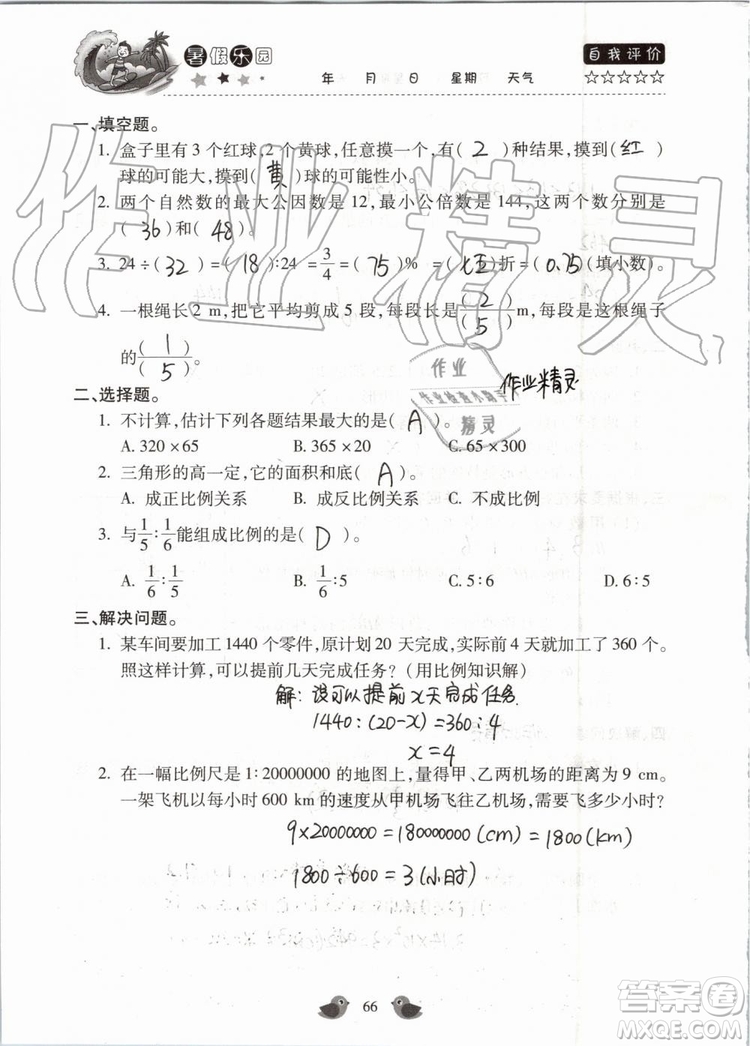 暑假乐园
自我评价
年 月 日 星期 天气
☆☆☆☆☆
一、填空题。
1. 盒子里有 3 个红球,2 个黄球,任意摸一个,有( 2 )种结果,摸到( 红 )
球的可能大,摸到( 黄 )球的可能性小。
2. 两个自然数的最大公因数是 12,最小公倍数是 144,这两个数分别是
( 36 )和( 48 )。
3. 24÷( 32 )=( 18 )∶24=3/4=( 75 )%=( 七五 )折=( 0.75 )(填小数)。
4. 一根绳长 2 m,把它平均剪成 5 段,每段长是( 2 )/( 5 )m,每段是这根绳子
的( 1 )/( 5 )。
作业
作业检查小助手
精灵
作业精灵
二、选择题。
1. 不计算,估计下列各题结果最大的是( A )。
A. 320×65 B. 365×20 C. 65×300
2. 三角形的高一定,它的面积和底( A )。
A. 成正比例关系 B. 成反比例关系 C. 不成比例
3. 与1/5∶1/6能组成比例的是( D )。
A. 1/6∶1/5 B. 1/6∶5 C. 5∶6 D. 6∶5
三、解决问题。
1. 某车间要加工 1440 个零件,原计划 20 天完成,实际前 4 天就加工了 360 个。
照这样计算,可以提前几天完成任务?(用比例知识解)
解:设可以提前x天完成任务.
1440:(20-x)=360:4
x=4
2. 在一幅比例尺是 1∶20000000 的地图上,量得甲、乙两机场的距离为 9 cm。
一架飞机以每小时 600 km 的速度从甲机场飞往乙机场,需要飞多少小时?
9×20000000=180000000(cm)=1800(km)
1800÷600=3(小时)
66
作业精灵
答案圈
MXQE.COM